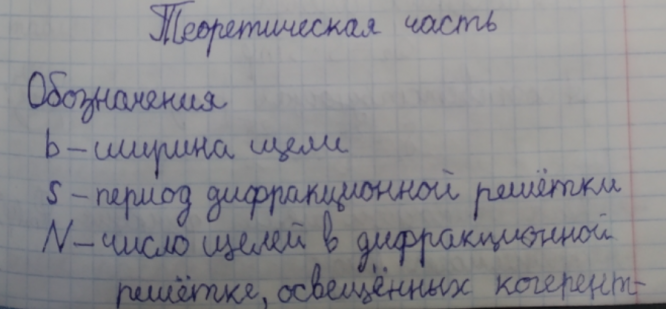 Теоретическая часть
Обозначения
b – ширина щели
S – период дифракционной решётки
N – число щелей в дифракционной
решётке, освещённых когерент-